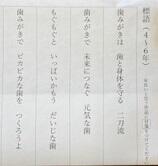 標語(4〜6年)
歯みがきは 歯と身体を守る 二刀流
歯みがきで 未来につなぐ 元気な歯
もぐもぐと いっぱいかもう だいじな歯
歯みがきで ピカピカな歯を つくろうよ